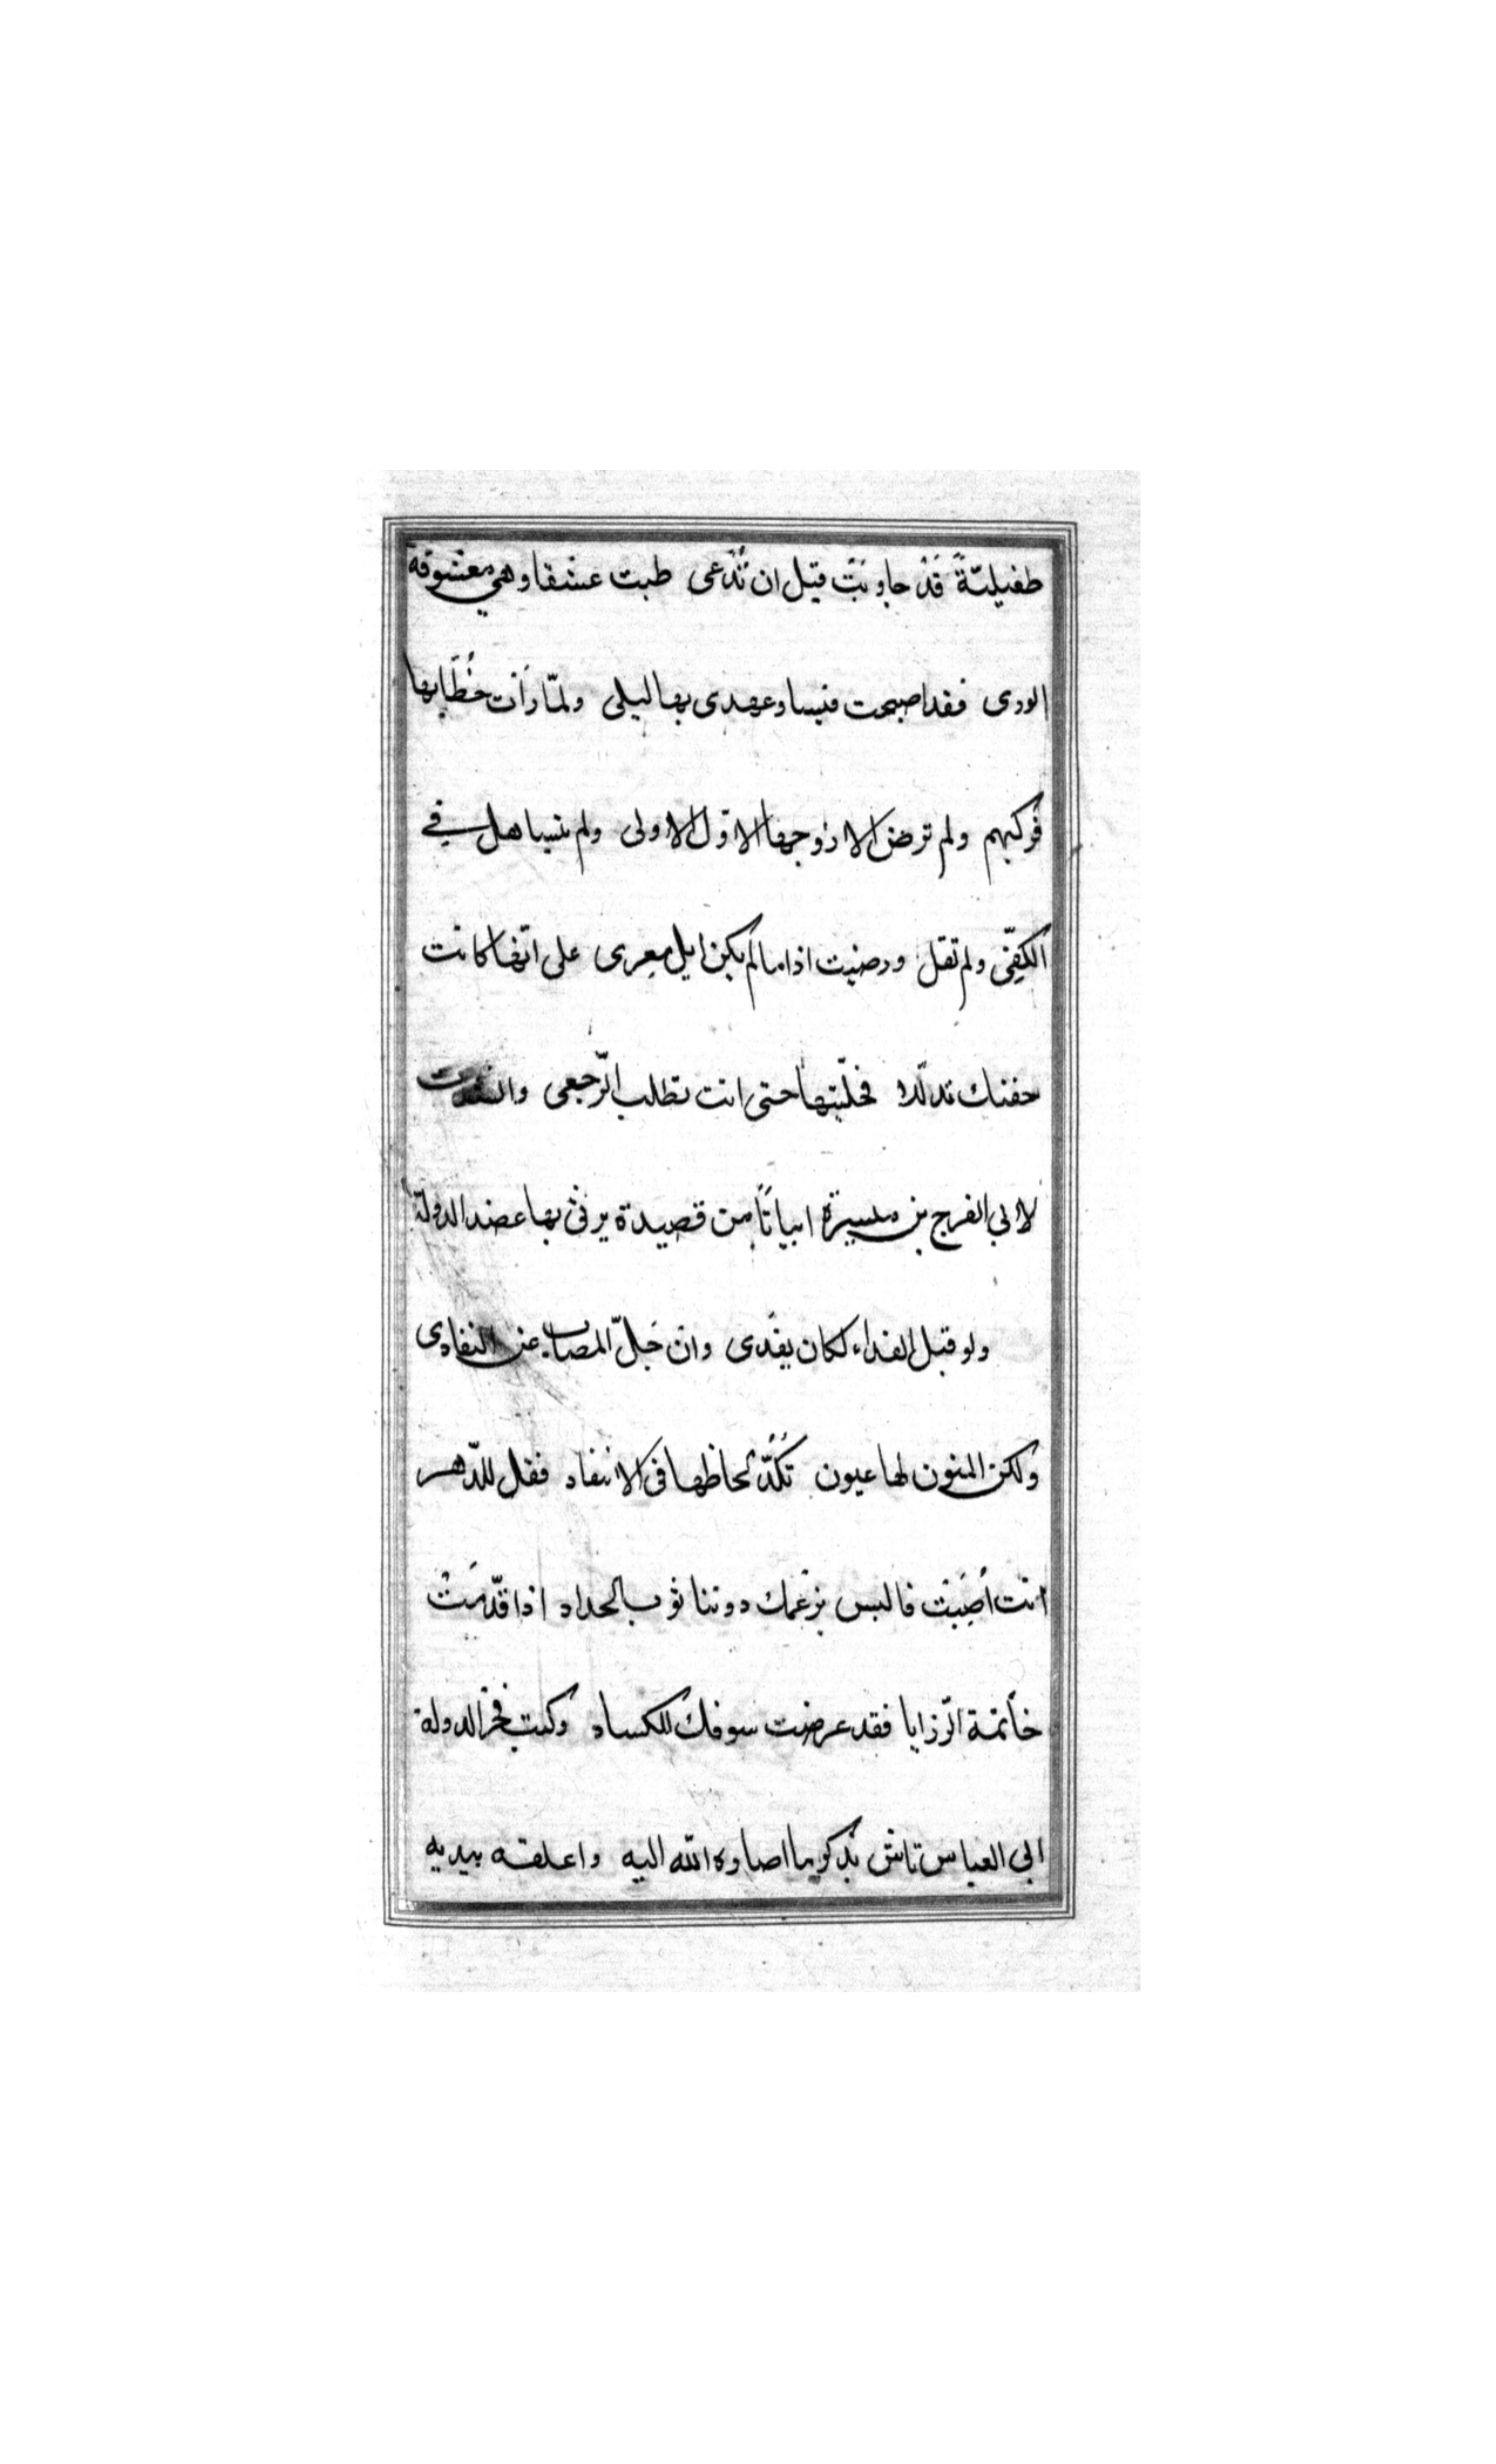 طفيليّةً قَدْ جاوبَتْ قبل ان تُدْعى طبت عشقا وهي معشوقة
الورى فقد اصبحت قيسا وعهدى بها ليلى ولمّا رأت خُطّابها
فركتهم ولم ترض الا زوجها الاوّل الاولى ولم تتساهل في
الكفيّ ولم تقل ورضيت اذا ما لم يكن ابل معرى على انّها كانت
حفتك تدلّلا فخلّيتها حتى اتت تطلب الرّجعى
لابي الفرج بن ميسرة ابياتًا من قصيدة يرثى بها عضد الدولة
ولو قبل الفداء لكان يفدى وان جلّ المصاب عن التفادى
ولكن المنون لها عيون تكُدّ لحاظها فى الانتقاد فقل للدّهر
انت اُصِبْتَ فالبس بزعمك دوننا ثوب الحداد اذا قدّمَتْ
خاتمة الرّزايا فقد عرضت سوقك للكساد وكتب فخر الدولة
الى العباس تاش يذكر ما اصاره الله اليه واعلقه بيديه